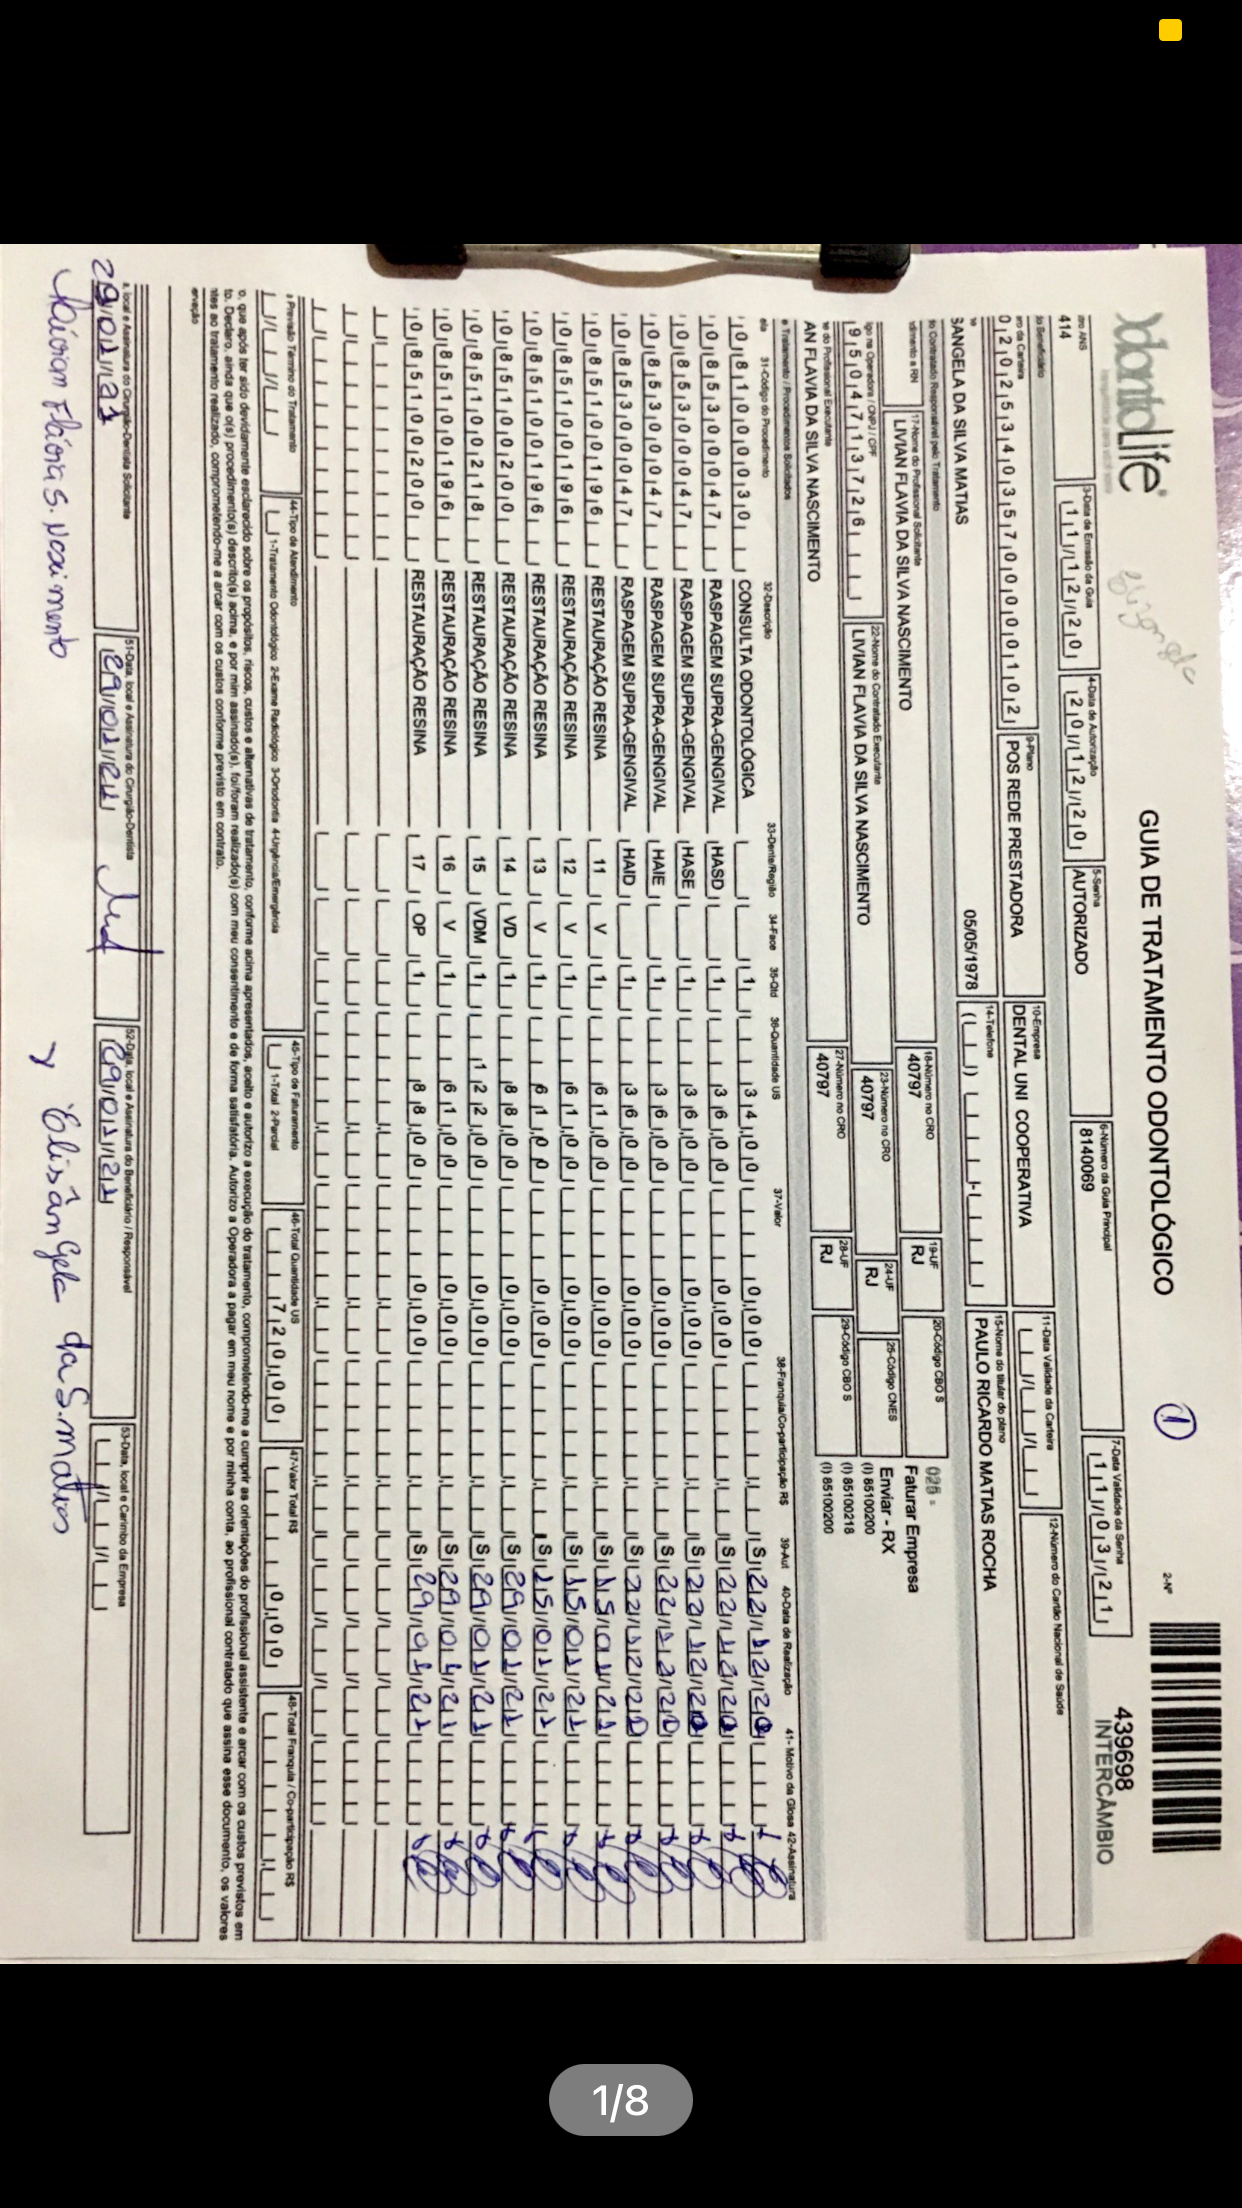 odontoLife®
Elizangela
GUIA DE TRATAMENTO ODONTOLÓGICO
1
2-Nº
439698
INTERCÂMBIO
414
3-Data de Emissão da Guia
11/12/20
4-Data de Autorização
20/12/20
5-Senha
AUTORIZADO
6-Número da Guia Principal
8140069
7-Data Validade da Senha
11/03/21
do Beneficiário
ro da Carteira
02025340357000000102
9-Plano
POS REDE PRESTADORA
10-Empresa
DENTAL UNI COOPERATIVA
11-Data Validade da Carteira
12-Número do Cartão Nacional de Saúde
SANGELA DA SILVA MATIAS
05/05/1978
14-Telefone
15-Nome do titular do plano
PAULO RICARDO MATIAS ROCHA
do Contratado Responsável pelo Tratamento
dimento a RN
17-Nome do Profissional Solicitante
LIVIAN FLAVIA DA SILVA NASCIMENTO
18-Número no CRO
40797
19-UF
RJ
20-Código CBO S
025 -
Faturar Empresa
igo na Operadora / CNPJ / CPF
9504713726
22-Nome do Contratado Executante
LIVIAN FLAVIA DA SILVA NASCIMENTO
23-Número no CRO
40797
24-UF
RJ
25-Código CNES
Enviar - RX
(I) 85100200
(I) 85100218
(I) 85100200
e do Profissional Executante
AN FLAVIA DA SILVA NASCIMENTO
27-Número no CRO
40797
28-UF
RJ
29-Código CBO S
e Tratamento / Procedimentos Solicitados
ela 31-Código do Procedimento 32-Descrição 33-Dente/Região 34-Face 35-Qtd 36-Quantidade US 37-Valor 38-Franquia/Co-participação R$ 39-Aut 40-Data de Realização 41- Motivo da Glosa 42-Assinatura
081000030 CONSULTA ODONTOLÓGICA 1 34,00 0,00 S 22/12/20
085300047 RASPAGEM SUPRA-GENGIVAL HASD 1 36,00 0,00 S 22/12/20
085300047 RASPAGEM SUPRA-GENGIVAL HASE 1 36,00 0,00 S 22/12/20
085300047 RASPAGEM SUPRA-GENGIVAL HAIE 1 36,00 0,00 S 22/12/20
085300047 RASPAGEM SUPRA-GENGIVAL HAID 1 36,00 0,00 S 22/12/20
085100196 RESTAURAÇÃO RESINA 11 V 1 61,00 0,00 S 15/01/21
085100196 RESTAURAÇÃO RESINA 12 V 1 61,00 0,00 S 15/01/21
085100196 RESTAURAÇÃO RESINA 13 V 1 61,00 0,00 S 15/01/21
085100200 RESTAURAÇÃO RESINA 14 VD 1 88,00 0,00 S 29/01/21
085100218 RESTAURAÇÃO RESINA 15 VDM 1 122,00 0,00 S 29/01/21
085100196 RESTAURAÇÃO RESINA 16 V 1 61,00 0,00 S 29/01/21
085100200 RESTAURAÇÃO RESINA 17 OP 1 88,00 0,00 S 29/01/21
a Previsão Término do Tratamento
44-Tipo de Atendimento
1-Tratamento Odontológico 2-Exame Radiológico 3-Ortodontia 4-Urgência/Emergência
45-Tipo de Faturamento
1-Total 2-Parcial
46-Total Quantidade US
720,00
47-Valor Total R$
0,00
48-Total Franquia / Co-participação R$
o, que após ter sido devidamente esclarecido sobre os propósitos, riscos, custos e alternativas de tratamento, conforme acima apresentados, aceito e autorizo a execução do tratamento, comprometendo-me a cumprir as orientações do profissional assistente e arcar com os custos previstos em
to. Declaro, ainda que o(s) procedimento(s) descrito(s) acima, e por mim assinado(s), foi/foram realizado(s) com meu consentimento e de forma satisfatória. Autorizo a Operadora a pagar em meu nome e por minha conta, ao profissional contratado que assina esse documento, os valores
ntes ao tratamento realizado, comprometendo-me a arcar com os custos conforme previsto em contrato.
ervação
a, local e Assinatura do Cirurgião-Dentista Solicitante
29/01/21
51-Data, local e Assinatura do Cirurgião-Dentista
29/01/21
52-Data, local e Assinatura do Beneficiário / Responsável
29/01/21
53-Data, local e Carimbo da Empresa
Lívian Flávia S. Nascimento
x Elisângela da S. matias
1/8